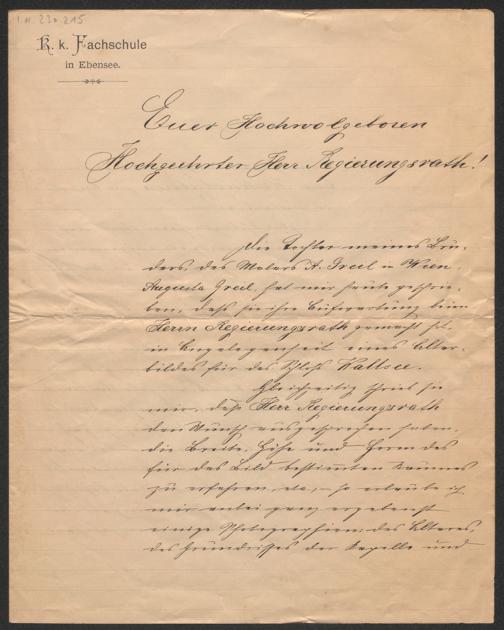 I.N. 230.215
K. k. Fachschule
in Ebensee.
Euer Hochwolgeboren
Hochgeehrter Herr Regierungsrath!
Die Tochter meines Bru-
ders, des Malers A. Greil in Wien,
Augusta Greil, hat mir heute geschrie-
ben, daß sie ihre Aufwartung beim
Herrn Regierungsrath gemacht hat,
in Angelegenheit eines Altar-
bildes für das Schloß Wallsee.
Gleichzeitig schrieb sie
mir, daß Herr Regierungsrath
den Wunsch ausgesprochen haben,
die Breite, Höhe und Form des
für das Bild bestimmten Raumes
zu erfahren, so erlaube ich
mir anbei ganz ergebenst
einige Photographien des Altares,
des Grundrisses der Kapelle und